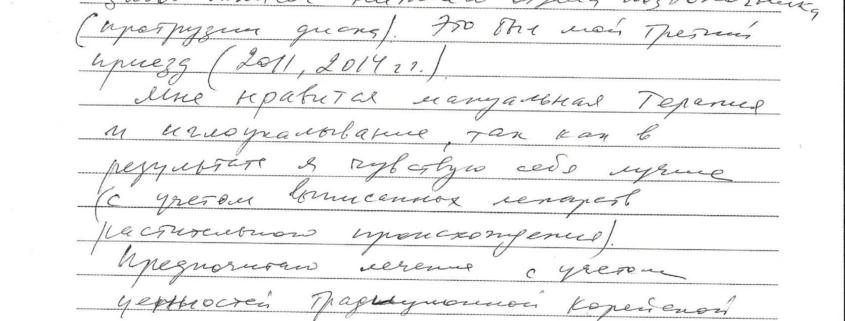 позвоночника
(протрузии диска). Это был мой третий
приезд (2011, 2014 гг.).
Мне нравится мануальная терапия
и иглоукалывание, так как в
результате я чувствую себя лучше
(с учетом выписанных лекарств
растительного происхождения).
Предпочитаю лечение с учетом
ценностей традиционной Корейской